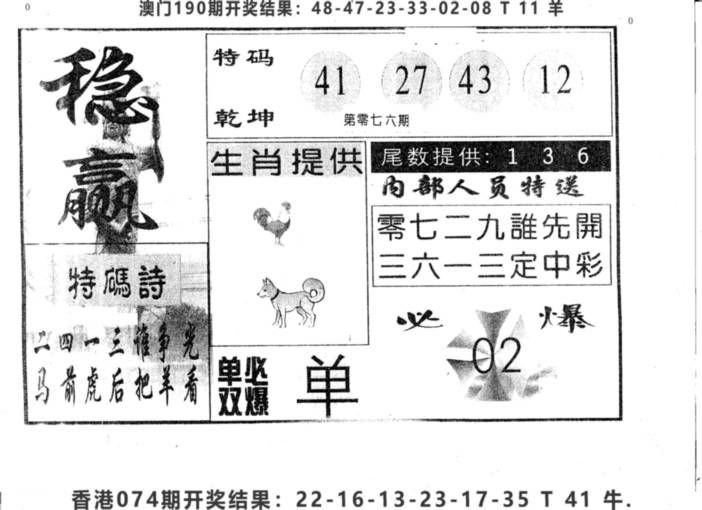 澳门190期开奖结果：48-47-23-33-02-08 T 11 羊
0
0
稳赢
特码
乾坤
41 27 43 12
第零七六期
生肖提供
尾数提供: 1 3 6
内部人员特送
零七二九誰先開
三六一三定中彩
特碼詩
二四一三谁争光
马前虎后把羊看
单双
必爆
单
必爆
02
香港074期开奖结果：22-16-13-23-17-35 T 41 牛.